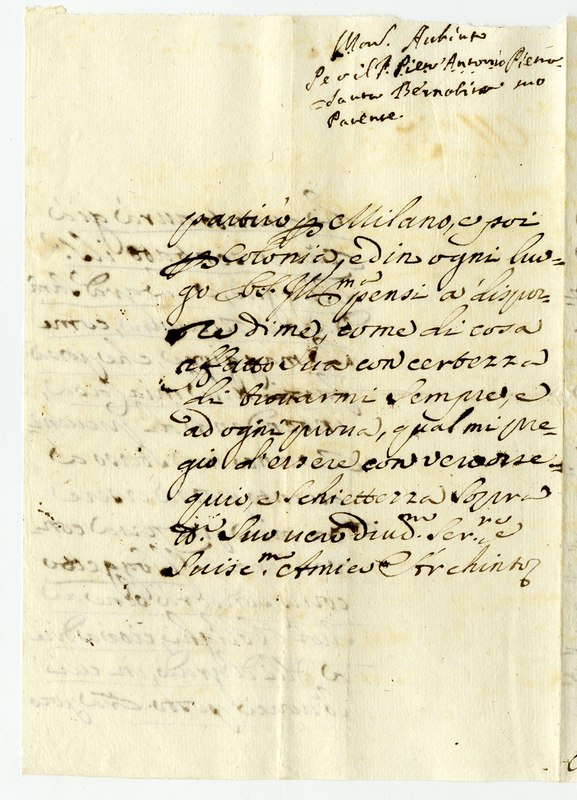 Mons. Archinto
Per il P. Pier Antonio Pietra=
=santa Bernabita suo
Parente.
partirò p Milano, e poi
p Colonia, ed in ogni luo=
go VS. Ill.ma pensi à dispor=
re di me, come di cosa
affatto sua con certezza
di trovarmi sempre, e
ad ogni prova, qual mi pre=
gio d'essere con vero osse=
quio, e schiettezza sopra
tt.o Suo vero div.mo Ser.re e
Suisc.mo Amico Archinto